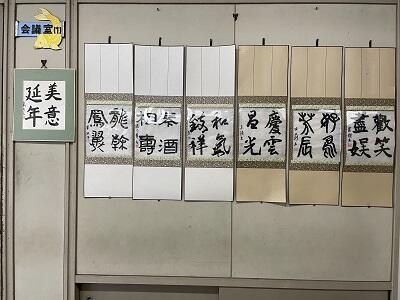 会議室m
美意
延年
龍翰
鳳翼
春酒
祝壽
和氣
致祥
慶雲
呂光
芳辰
歡笑
盡娯